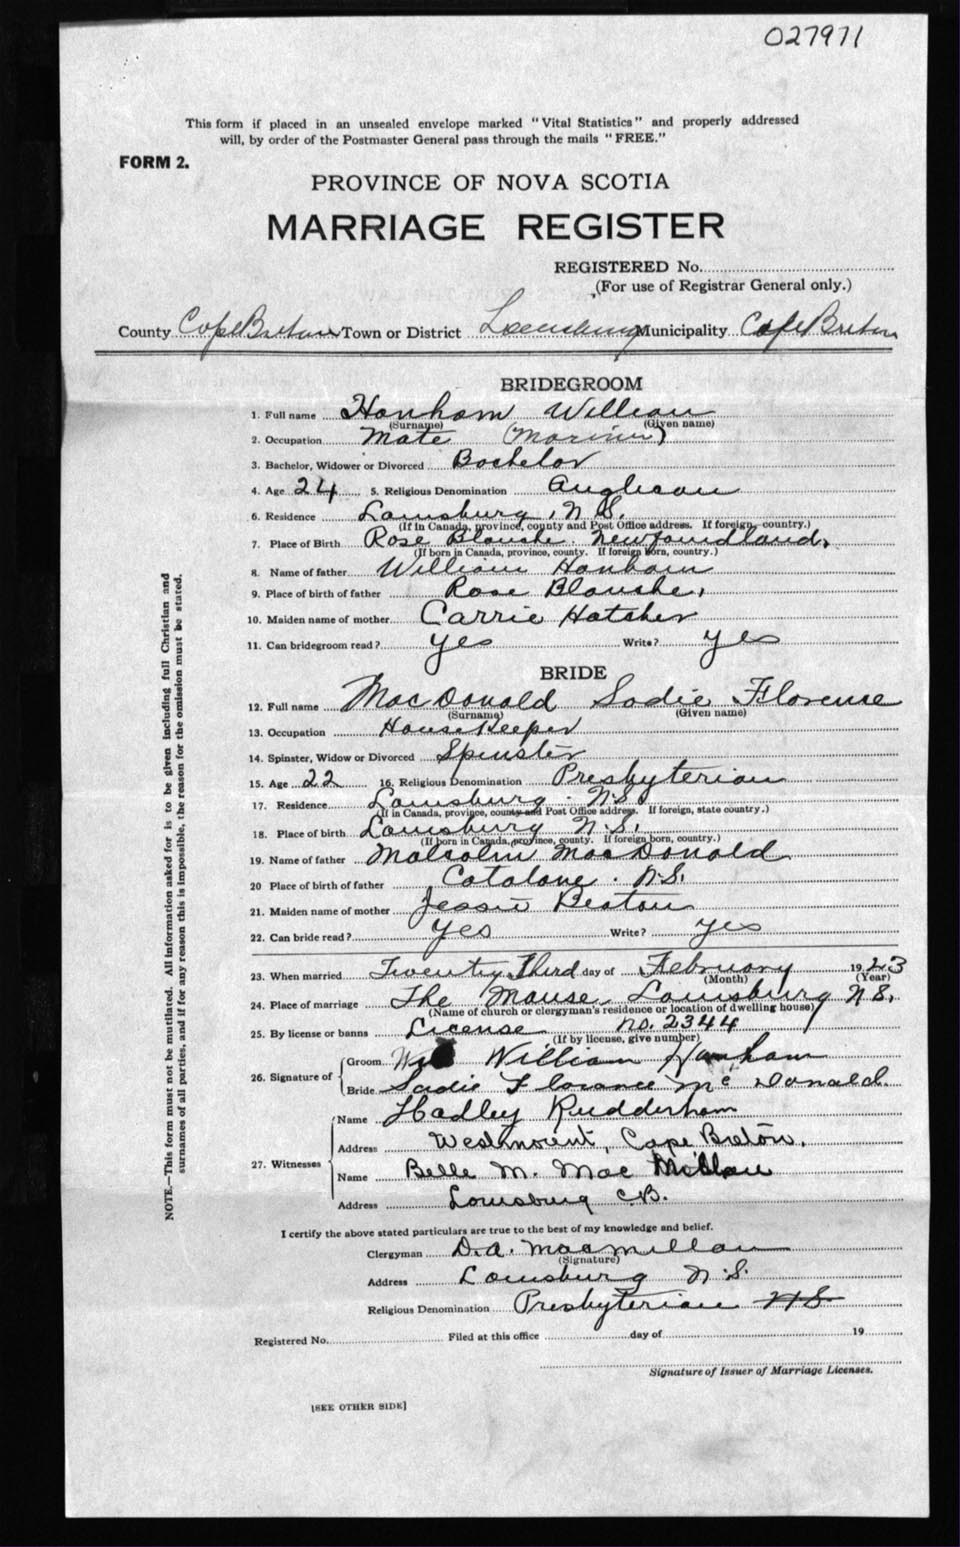 027971
This form if placed in an unsealed envelope marked "Vital Statistics" and properly addressed
will, by order of the Postmaster General pass through the mails "FREE."
FORM 2.
PROVINCE OF NOVA SCOTIA
MARRIAGE REGISTER
REGISTERED No.
(For use of Registrar General only.)
County Cape Breton Town or District Louisburg Municipality Cape Breton
BRIDEGROOM
1. Full name Hanham William
(Surname) (Given name)
2. Occupation Mate (Mariner)
3. Bachelor, Widower or Divorced Bachelor
4. Age 24 5. Religious Denomination Anglican
6. Residence Louisburg, N.S.
(If in Canada, province, county and Post Office address. If foreign, country.)
7. Place of Birth Rose Blanche Newfoundland,
(If born in Canada, province, county. If foreign born, country.)
8. Name of father William Hanham
9. Place of birth of father Rose Blanche,
10. Maiden name of mother Carrie Hatcher
11. Can bridegroom read? yes Write? yes
BRIDE
12. Full name MacDonald Sadie Florence
(Surname) (Given name)
13. Occupation HouseKeeper
14. Spinster, Widow or Divorced Spinster
15. Age 22 16. Religious Denomination Presbyterian
17. Residence Louisburg. N.S.
(If in Canada, province, county and Post Office address. If foreign, state country.)
18. Place of birth Louisburg N.S.
(If born in Canada, province, county. If foreign born, country.)
19. Name of father Malcolm MacDonald
20 Place of birth of father Catalone. N.S.
21. Maiden name of mother Jessie Beaton
22. Can bride read? yes Write? yes
23. When married Twenty Third day of February 1923
(Month) (Year)
24. Place of marriage The Manse, Louisburg N.S.
(Name of church or clergyman's residence or location of dwelling house)
25. By license or banns License No. 2344
(If by license, give number)
26. Signature of Groom William Hanham
Bride Sadie Florance Mc Donald.
27. Witnesses Name Hadley Rudderham
Address Westmount, Cape Breton.
Name Belle M. Mac Millan
Address Louisburg C.B.
I certify the above stated particulars are true to the best of my knowledge and belief.
Clergyman D.A. Macmillan
(Signature)
Address Louisburg N.S.
Religious Denomination Presbyterian N.S.
Registered No. Filed at this office day of 19
Signature of Issuer of Marriage Licenses.
[SEE OTHER SIDE]
NOTE.—This form must not be mutilated. All information asked for is to be given including full Christian and
surnames of all parties, and if for any reason this is impossible, the reason for the omission must be stated.